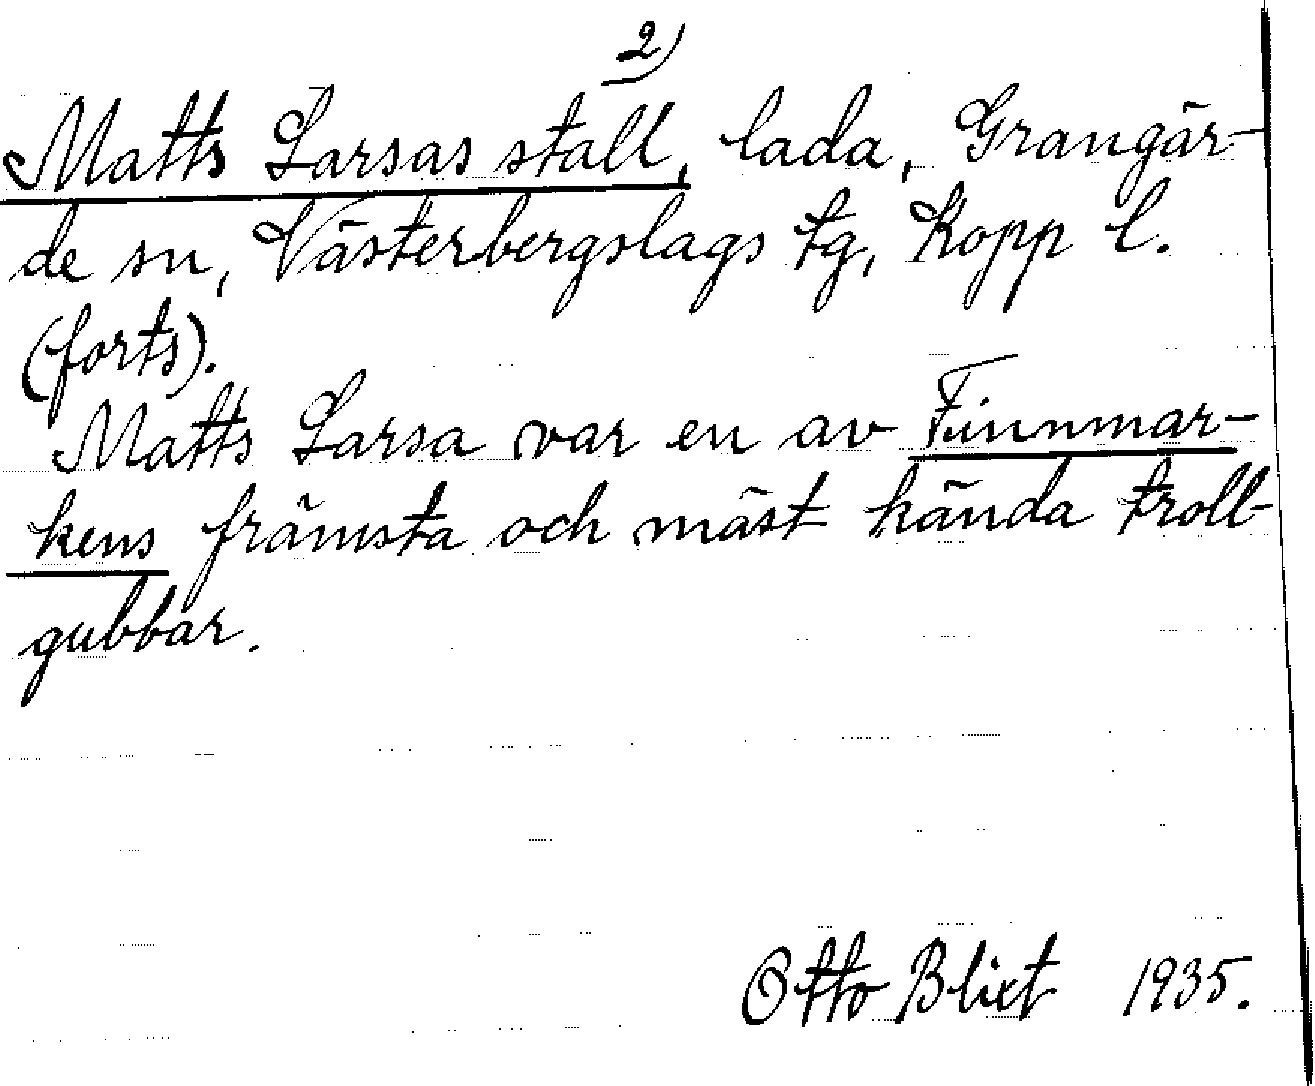 2)
Matts Larsas stall, lada, Grangär-
de sn, Västerbergslags tg, Kopp l.
(forts).
Matts Larsa var en av Finnmar-
kens främsta och mäst hända troll-
gubbar.
Otto Blixt 1935.